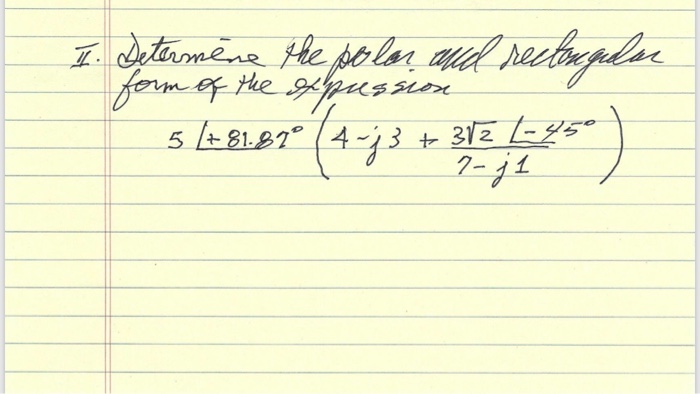 II. Determine the polar and rectangular
form of the expression
5 ∠+81.87° (4-j3 + 3√2 ∠-45° / 7-j1)